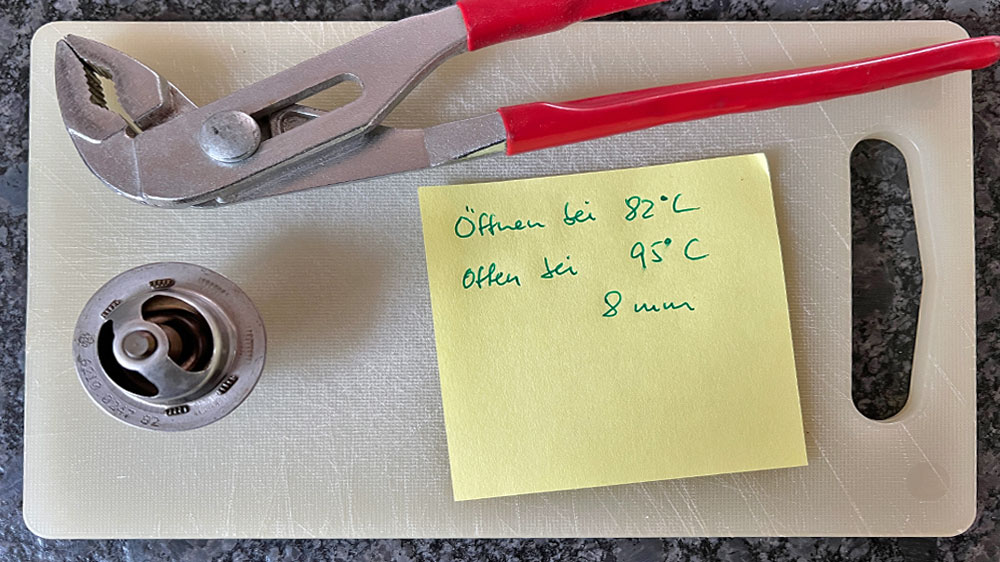 Öffnen bei 82°C
Offen bei 95°C
8 mm